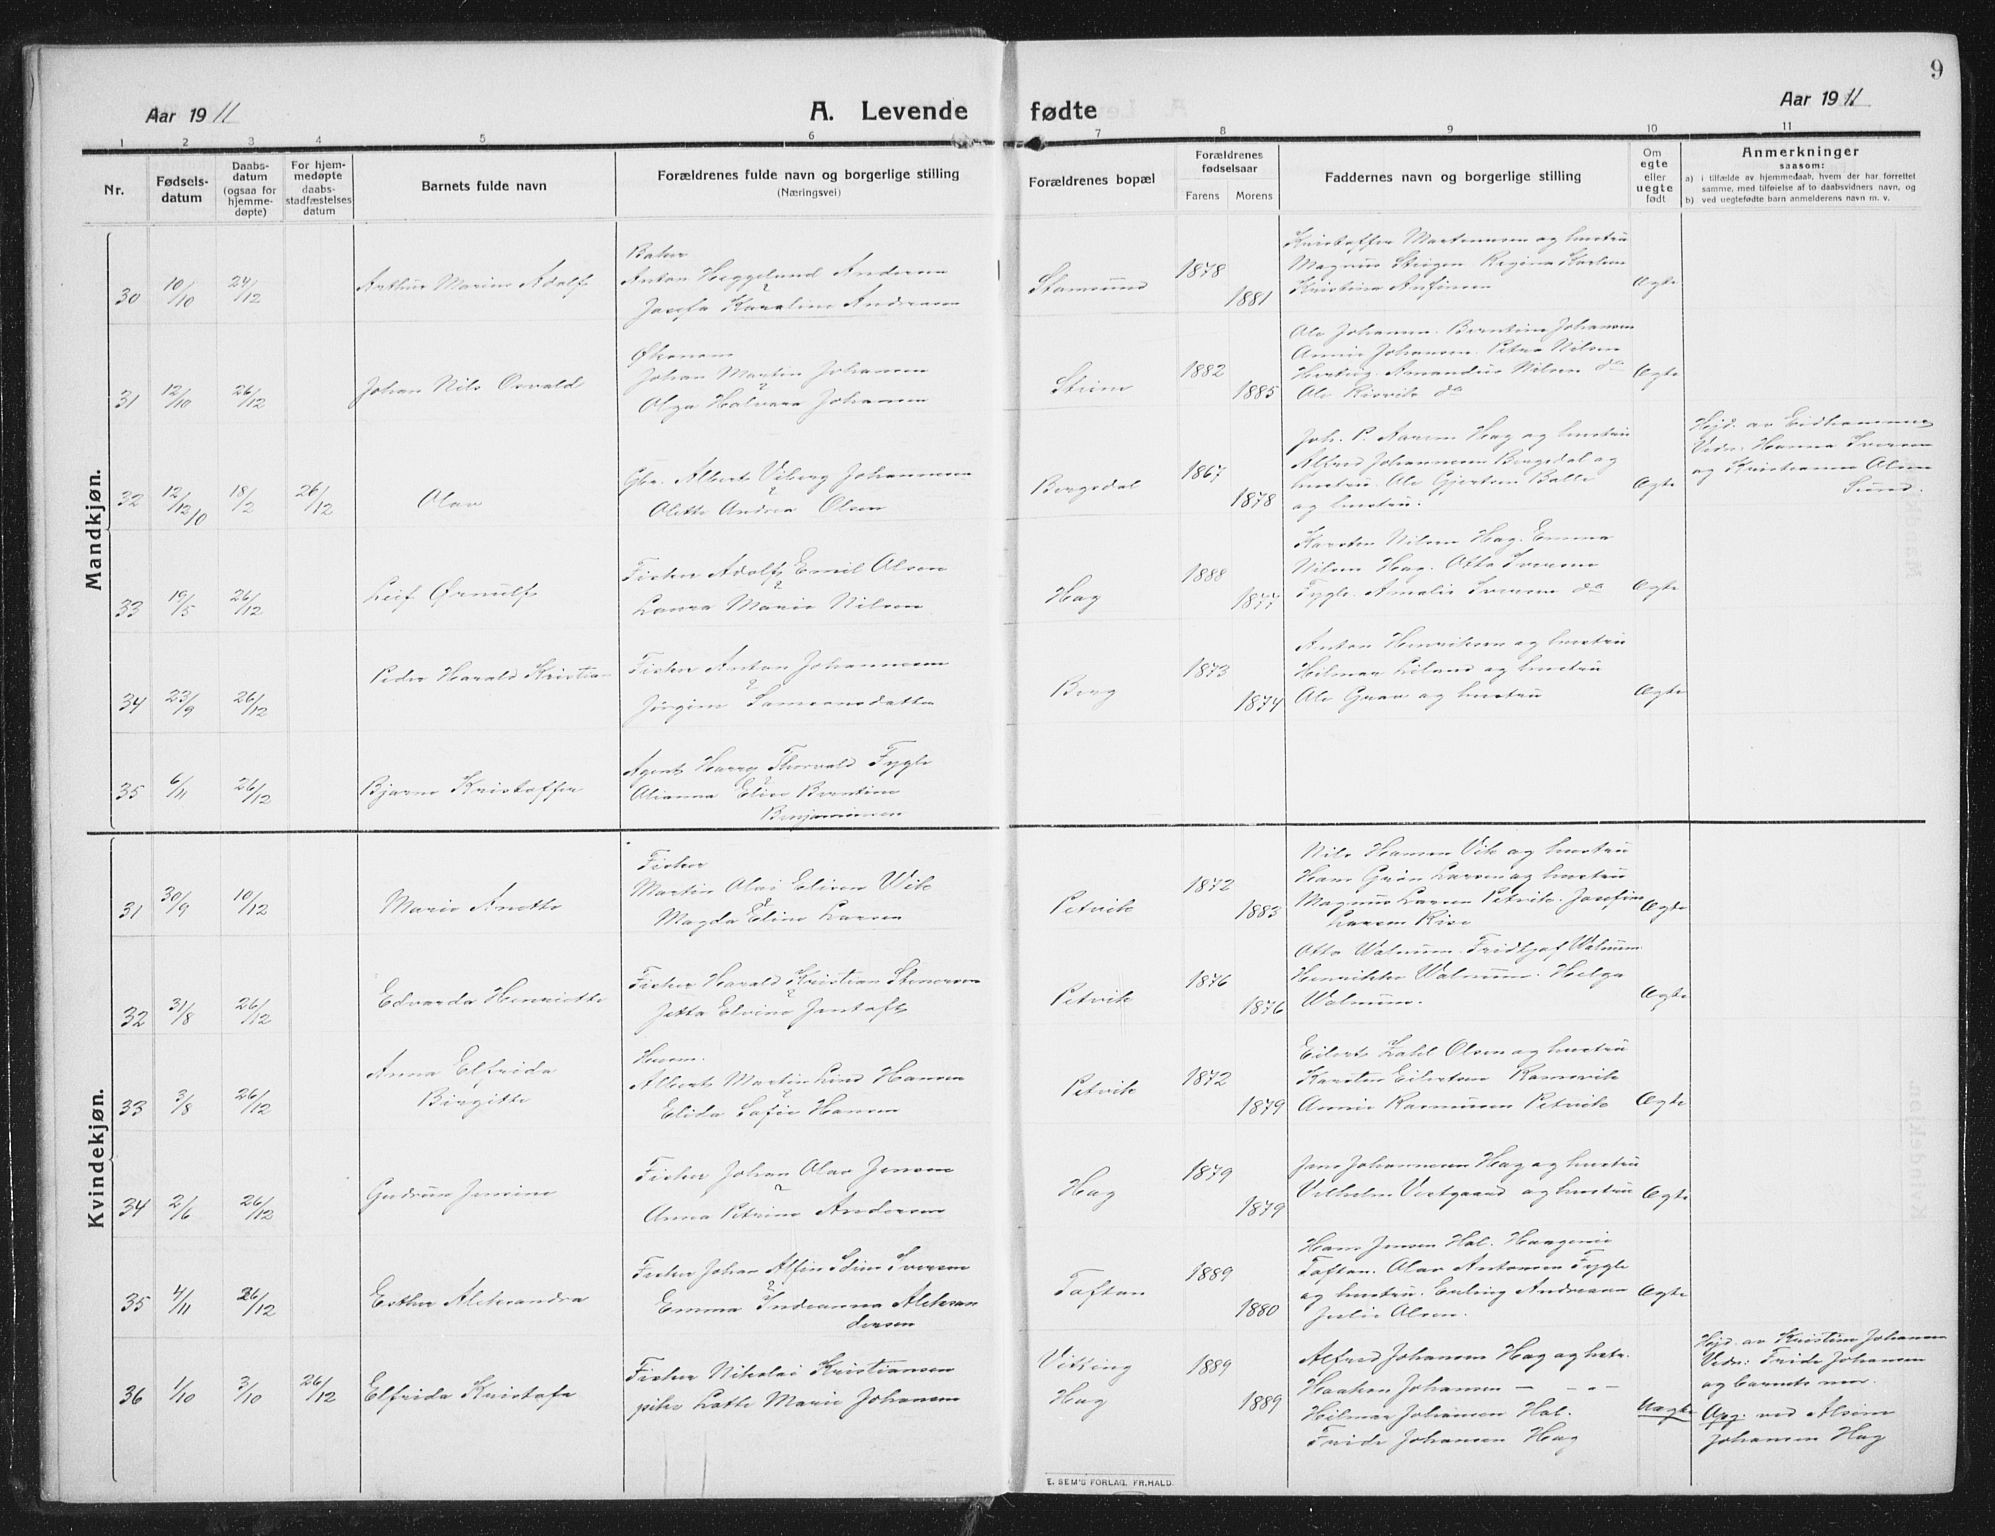 9
Aar 1911
A. Levende fødte
Aar 1911
1 2 3 4 5 6 7 8 9 10 11
Nr.
Fødsels-
datum
Daabs-
datum
(ogsaa for
hjemme-
døpte)
For hjem-
medøpte
daabs-
stadfæstelses
datum
Barnets fulde navn
Forældrenes fulde navn og borgerlige stilling
(Næringsvei)
Forældrenes bopæl
Forældrenes
fødselsaar
Farens Morens
Faddernes navn og borgerlige stilling
Om
egte
eller
uegte
født
Anmerkninger
saasom:
a) i tilfælde av hjemmedaab, hvem der har forrettet
samme, med tilføielse af to daabsvidners navn, og
b) ved uegtefødte barn anmelderens navn m. v.
Mandkjøn.
30 10/10 24/12 Arthur Marius Adolf
Baker
Anton Heggelund Andersen
Josefa Karoline Andersen
Stamsund 1878 1881
Kristoffer Martinussen og hustru
Magnus Steigen Regina
Kristine
Ægte
31 12/10 26/12 Johan Nils Osvald
Økonom
Johan Martin Johansen
Olga Halvara Johansen
Steine 1882 1885
Ole Johansen. Berntine Johansen
Annie Johansen. Petra Nilsen
Hartvig. Amandus Nilsen do
Ole Risvik do
Ægte
32 12/12 10 18/2 26/12 Olav
Gbr. Albert Viberg Johannesen
Olette Andrea Olsen
Borgedal 1867 1878
Joh. P. Aasen Hag og hustru
Alfred Johannesen Borgedal og
hustru. Ole Gjertsen Balle
og hustru.
Ægte
Hjd. av
Vidn: Hanna Iversen
og Kristianna Olsen
Sund.
33 19/5 26/12 Leif Ørnulf
Fisker Adolf Emil Olsen
Laura Marie Nilsen
Hag 1888 1877
Karsten Nilsen Hag. Emma
Nilsen Hag. Otto Iversen
Fygle. Amalie Iversen do
Ægte
34 23/9 26/12 Peder Harald Kristian
Fisker Anton Johannesen
Jørgine Samsonsdatter
Borg 1873 1874
Anton Henriksen og hustru
Hilmar Eiland og hustru
Ole Grav og hustru
Ægte
35 6/11 26/12 Bjarne Kristoffer
Agent Harry Thorvald Fygle
Olianna Elise Berntine
Benjaminsen
Kvindekjøn.
31 30/9 10/12 Marie Anette
Fisker
Martin Olai Elisen Wik
Magda Eline Larsen
Petvik 1872 1883
Nils Hansen Vik og hustru
Hans Grøn Larsen og hustru
Magnus Larsen Petvik. Josefine
Larsen Rise
Ægte
32 31/8 26/12 Edvarda Henriette
Fisker Harald Kristian Stenersen
Jetta Elvine Jentoft
Petvik 1876 1876
Otto Walnum. Fridtjof Walnum.
Henrikke Walnum. Helga
Walnum.
Ægte
33 3/8 26/12 Anna Elfrida
Birgitte
Husm.
Albert Martin Lind Hansen
Elida Sofie Hansen
Petvik 1872 1879
Eilert Zahl Olsen og hustru
Karsten Eilertsen Ramsvik
Annie Rasmussen Petvik
Ægte
34 2/6 26/12 Gudrun Jensine
Fisker Johan Olav Jensen
Anna Petrine Andersen
Hag 1879 1879
Jens Johannesen Hag og hustru
Vilhelm Vestgaard og hustru
Ægte
35 4/11 26/12 Esther Aleksandra
Fisker Johan Alfin Edin Iversen
Emma Indianna Aleksan
dersen
Toftan 1889 1880
Hans Jensen Hol. Haagenie
Toftan. Olav Antonsen Fygle
og hustru. Erling Andreassen
Julie Olsen.
Ægte
36 1/10 3/10 26/12 Elfrida Kristofa
Fisker Nikolai Kristiansen
pike Lotte Marie Johansen
Vikking
Hag 1889 1889
Alfred Johansen Hag og hustr.
Haakon Johansen
Hilmar Johansen Hol.
Fride Johansen Hag
Uægte
Hjd. av Kristine Johansen
Vidn: Fride Johansen
og barnets mor.
Opg. ved Alsine
Johansen Hag
E. SEM'S FORLAG. FR.HALD.